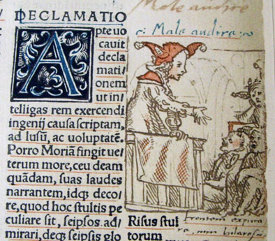 DECLAMATIO
Apte uo
cauit
decla
mati/
onem
ut in
telligas rem exercendi
ingenij causa scriptam,
ad lusum, ac uoluptatē.
Porro Moriā fingit ue
terum more, ceu deam
quādam, suas laudes
narrantem, idq; decō
re, quod hoc stultis pe
culiare sit, seipsos ad/
mirari, deq; seipsis glo
Male audire
Male audire
Risus stul
torum
frontem